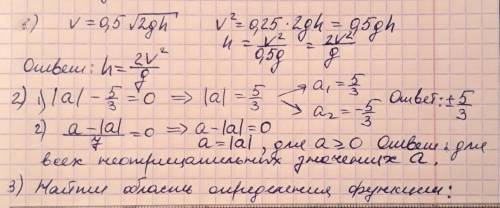 1) v = 0,5 √2gh   v² = 0,25 · 2gh = 0,5gh
h = v²/0,5g = 2v²/g
Ответ: h = 2v²/g
2) 1) |a| - 5/3 = 0 ⟹ |a| = 5/3 a₁ = 5/3 a₂ = -5/3 Ответ: ± 5/3
2) a - |a|/7 = 0 ⟹ a - |a| = 0
a = |a|, для a ≥ 0 Ответ: для
всех неотрицательных значениях a.
3) Найти область определения функции: